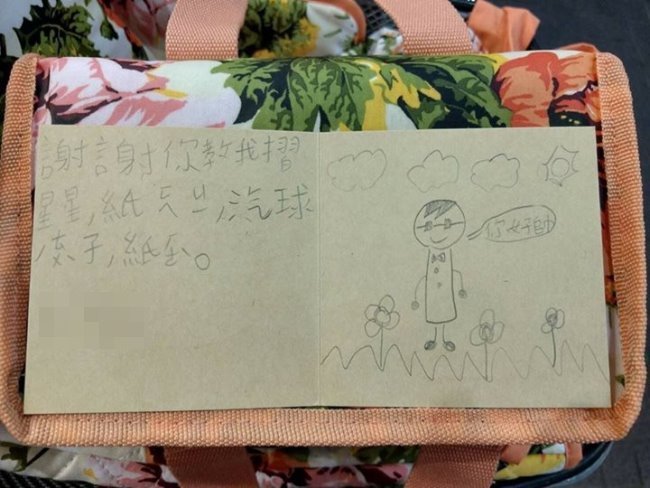 謝謝你教我摺
星星,紙,汽球
子,紙。
你好帥